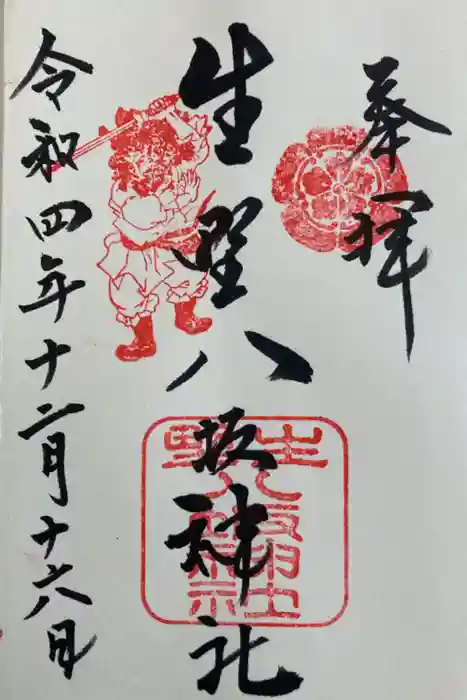 奉拝
生野八坂神社
生野八坂神社
令和四年十二月十六日